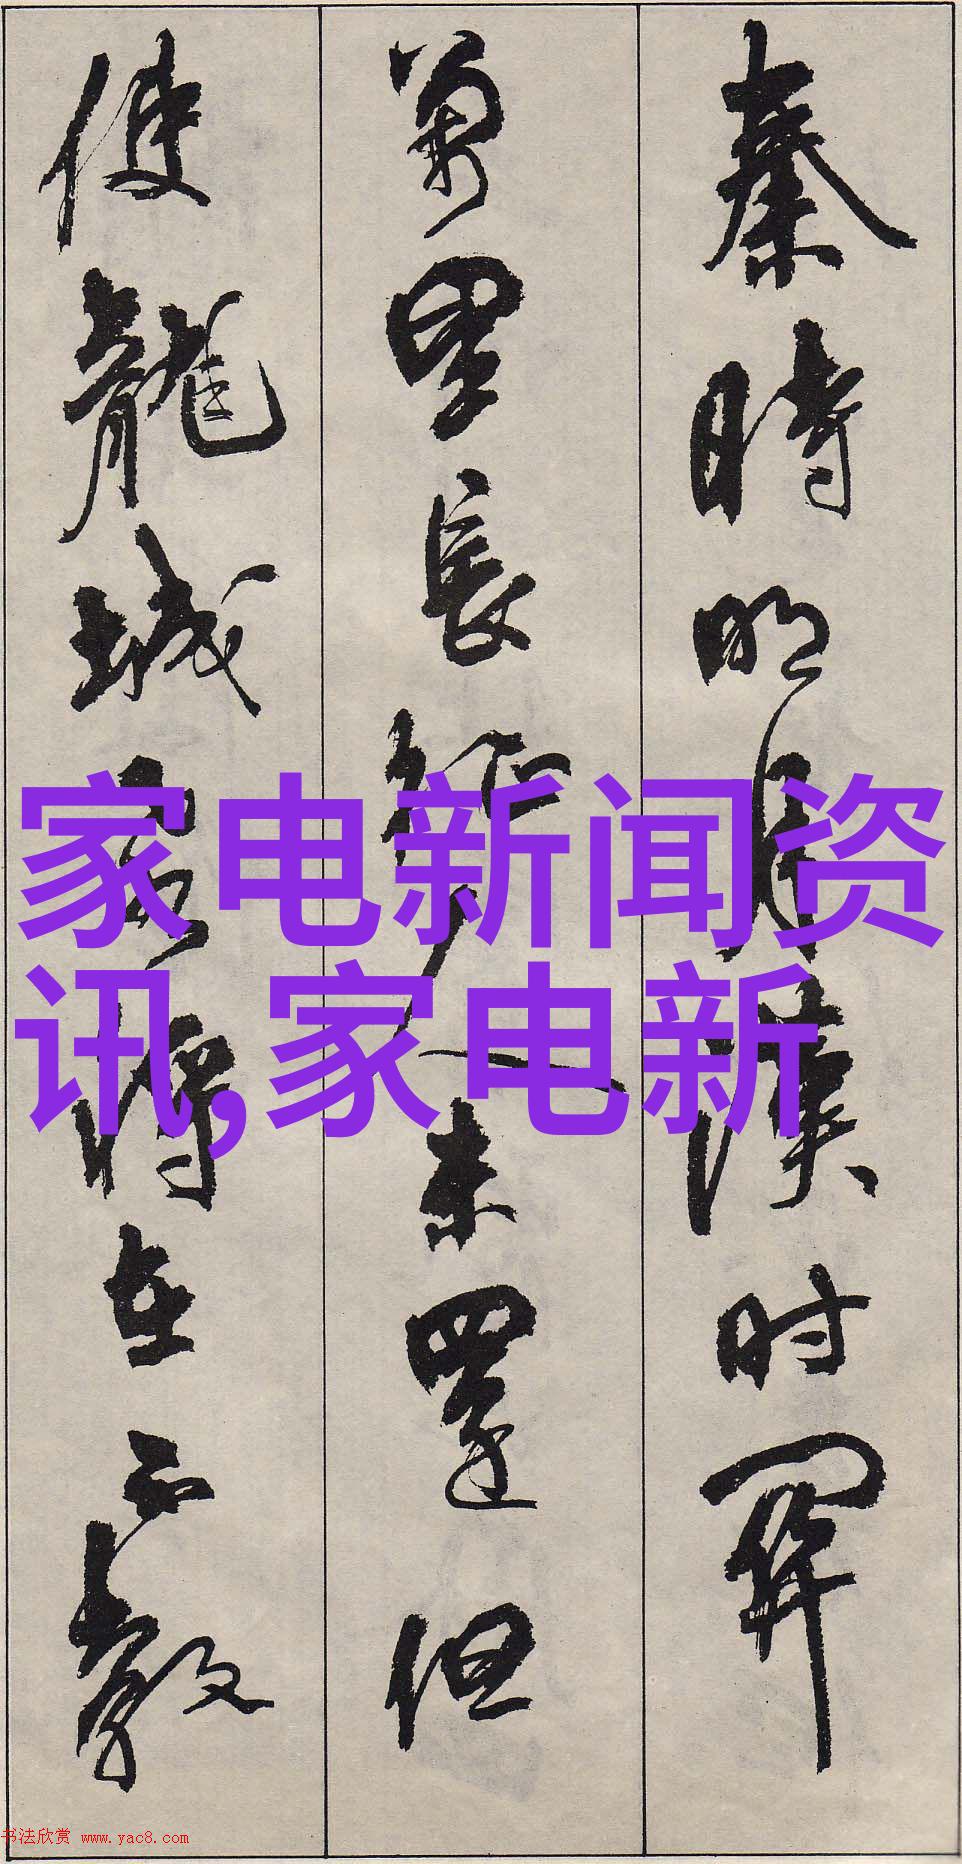 秦時明月漢时關
萬里長征人未還但
使龍城飛將在不教
家电新闻资
讯,家电新
书法欣赏 www.yac8.com